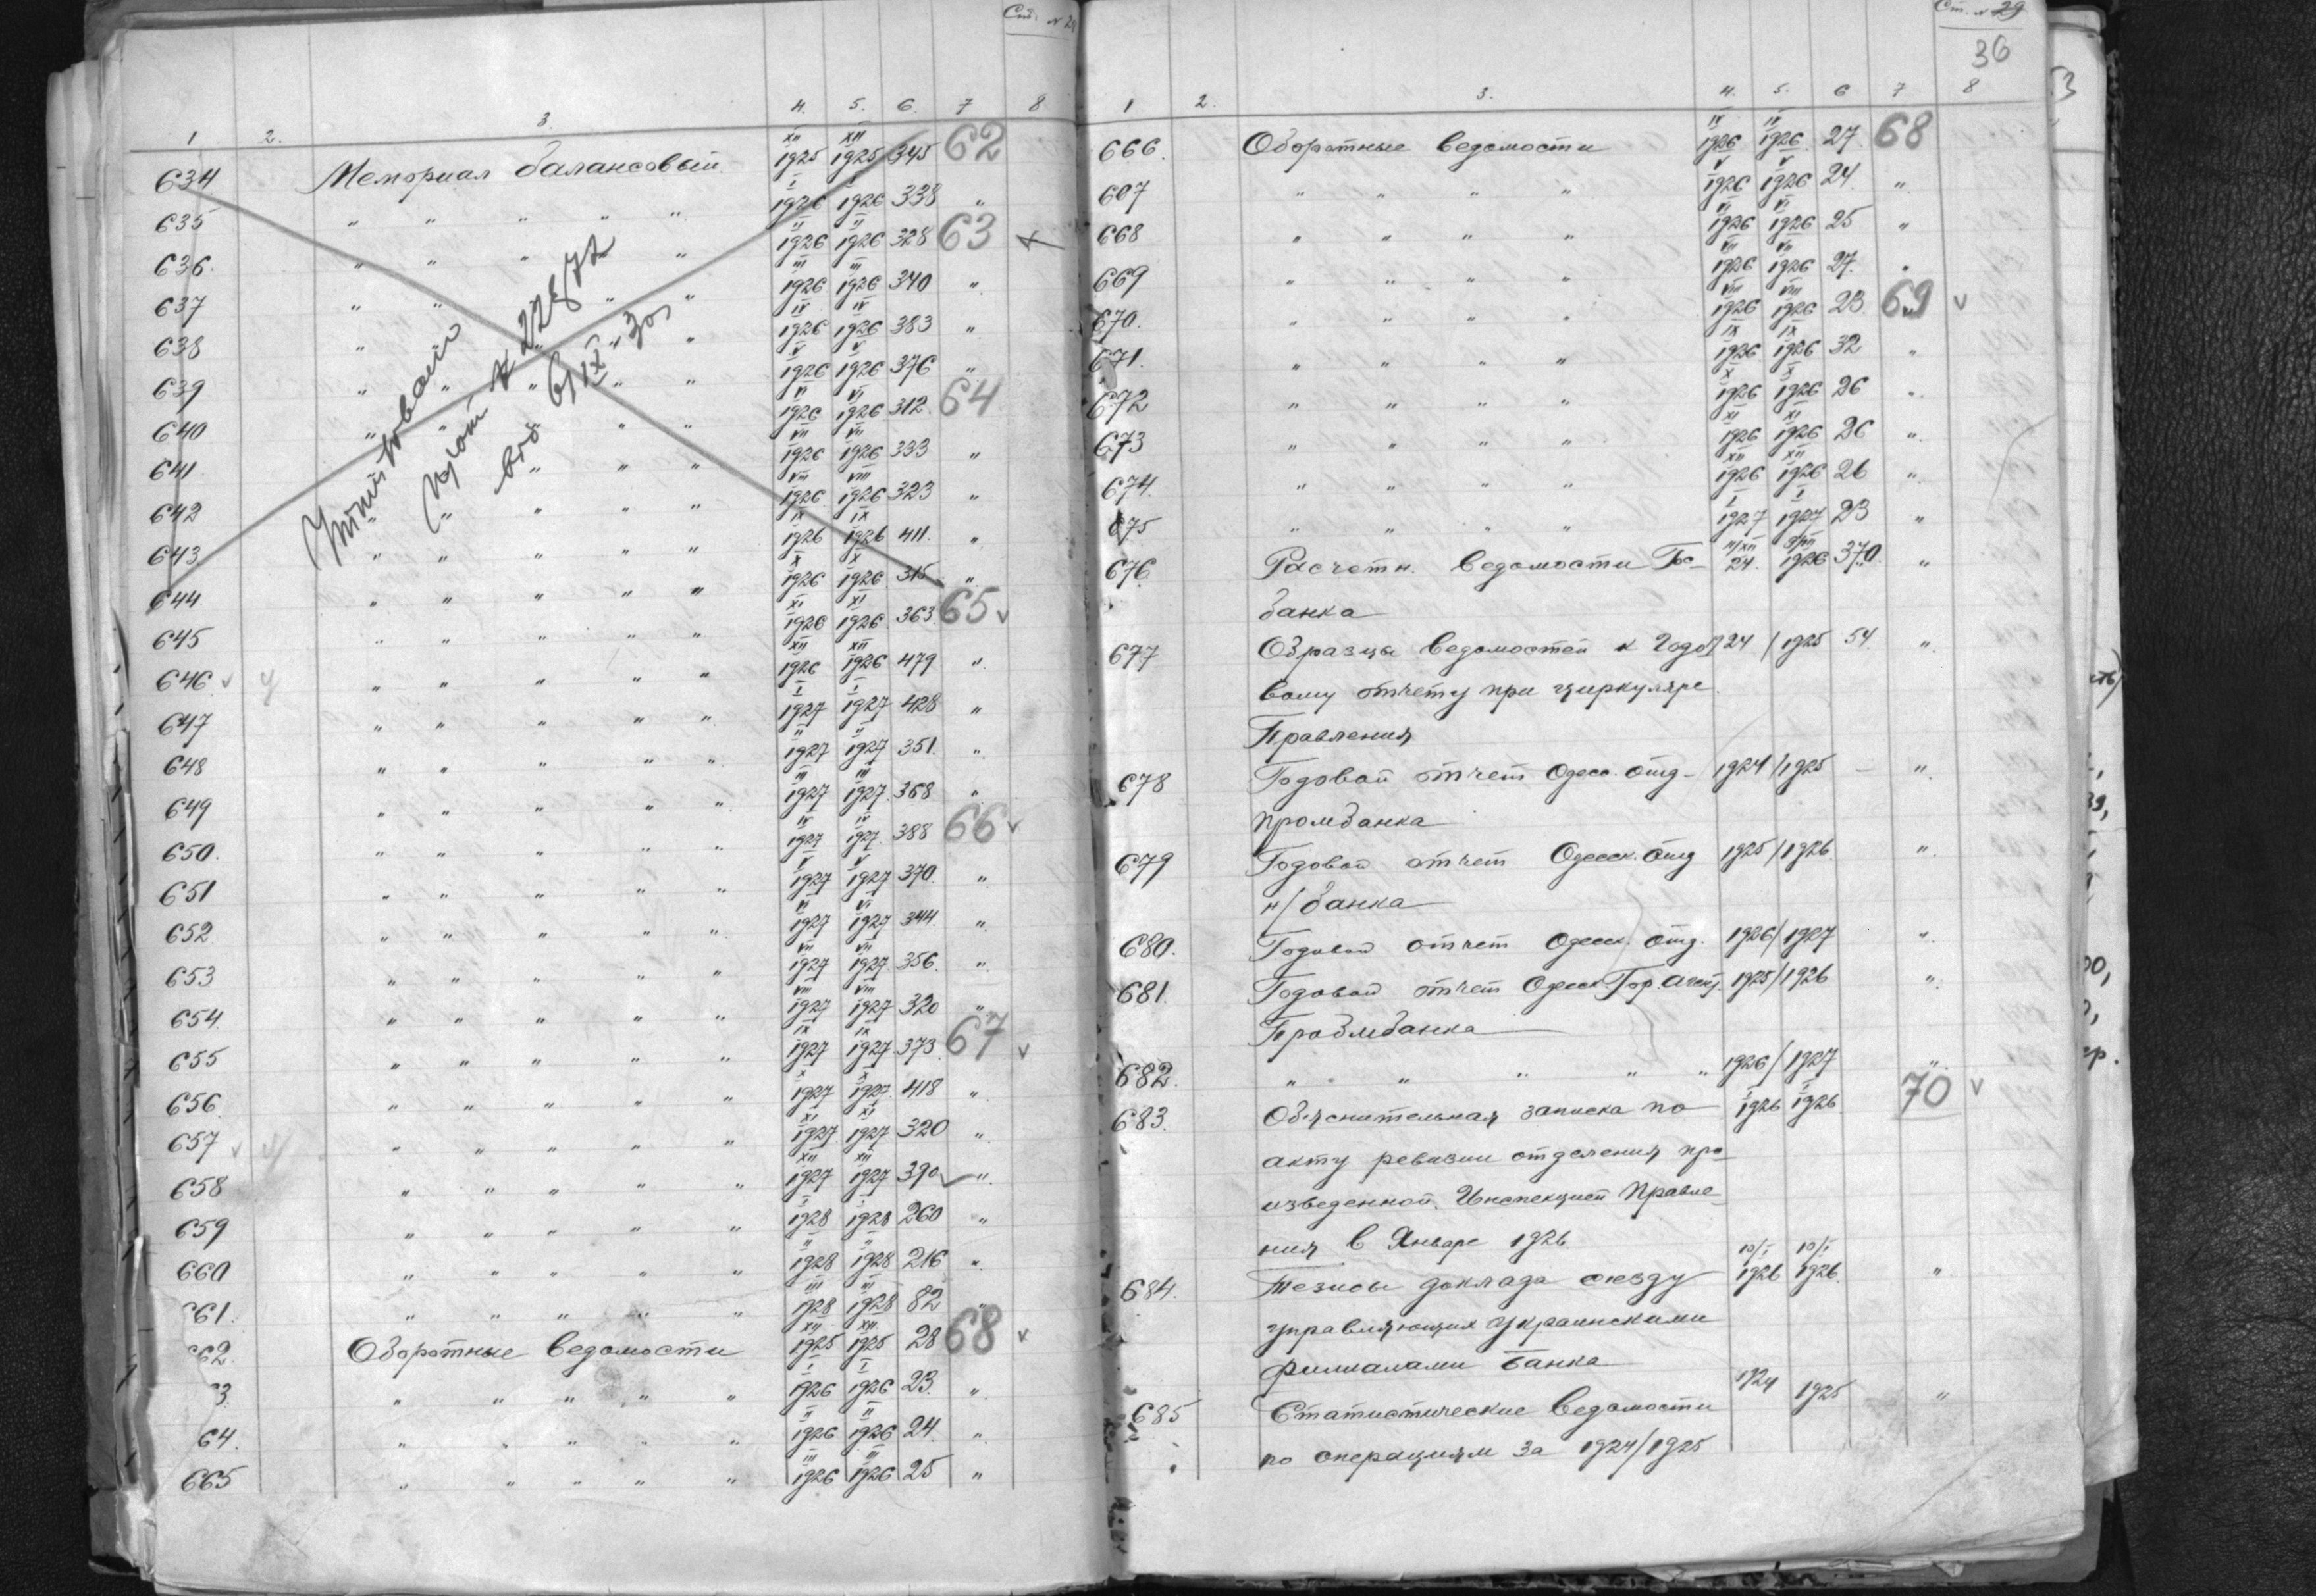 1 2. 3. 4. 5. 6. 7 8
634 Мемориал балансовый. XII 1925 XII 1925 345 62
635 " " " " " I 1926 I 1926 338 "
636. " " " " II 1926 II 1926 328 63
637 " " " " III 1926 III 1926 340 "
638 " " " " " IV 1926 IV 1926 383 "
639 " " " " " V 1926 V 1926 376 "
640 " " " " " VI 1926 VI 1926 312. 64
641 " " " VII 1926 VII 1926 333 "
642 " " " " " VIII 1926 VIII 1926 323 "
643 " " " " " IX 1926 IX 1926 411. "
644 " " " " " X 1926 X 1926 315 "
645 " " " " " XI 1926 XI 1926 363 65 v
646. v " " " " " XII 1926 XII 1926 479 "
647 " " " " " I 1927 I 1927 428 "
648 " " " " " II 1927 II 1927 351. "
649 " " " " " III 1927 III 1927. 368 "
650. " " " " " IV 1927 IV 1927. 388 66 v
651 " " " " " V 1927 V 1927 370. "
652 " " " " " VI 1927 VI 1927 344. "
653 " " " " " VII 1927 VII 1927 356. "
654. " " " " " VIII 1927 VIII 1927 320 "
655 " " " " " IX 1927 IX 1927. 373. 67 v
656. " " " " " X 1927 X 1927. 418 "
657 v " " " " " XI 1927. XI 1927 320 "
658 " " " " " XII 1927 XII 1927 390 v "
659 " " " " " I 1928 I 1928 260 "
660 " " " " " II 1928 II 1928 216 "
61. " " " " " III 1928 III 1928 82 "
62 Оборотные ведомости XII 1925 XII 1925 28 68 v
3. " " " " " I 1926 I 1926 23. "
64. " " " " " II 1926 II 1926 24. "
665 " " " " " III 1926 III 1926 25 "
Ст. N 29
36
1 2. 3. 4. 5. 6 7 8
666. Оборотные ведомости IV 1926 IV 1926. 27. 68
667 " " " " V 1926 V 1926 24. "
668 " " " " VI 1926 VI 1926 25 "
669 " " " " VII 1926 VII 1926 27. "
670. " " " " VIII 1926 VIII 1926 23. 69 v
671. " " " " IX 1926 IX 1926 32 "
672 " " " " X 1926 X 1926 26 "
673 " " " " XI 1926 XI 1926 26 "
674. " " " " XII 1926 XII 1926 26 "
675 " " " " I 1927 I 1927 23 "
676. Расчетн. ведомости Гос- 24. 1926 370. "
банка
677 Образцы ведомостей к Годо 24 / 1925 54. "
вому отчету при циркуляре
Правления
678 Годовой отчет Одесс. отд- 1924 / 1925 - "
промбанка
679 Годовой отчет Одесск. Отд 1925 / 1926. "
н/банка
680. Годовой отчет Одесск. Отд. 1926 / 1927 "
681. Годовой отчет Одесск Гор. Агент. 1925 / 1926 "
Промбанка
682. " " " " " 1926 / 1927 "
683. Объяснительная записка по I 1926 I 1926 70 v
акту ревизии отделения про-
изведенной. Инспекцией Правле-
ния в Январе 1926
684. Тезисы доклада съезду 10/I 1926 10/I 1926. "
управляющих Украинскими
филиалами Банка
685 Статистические ведомости 1924 1925 "
по операциям за 1924/1925